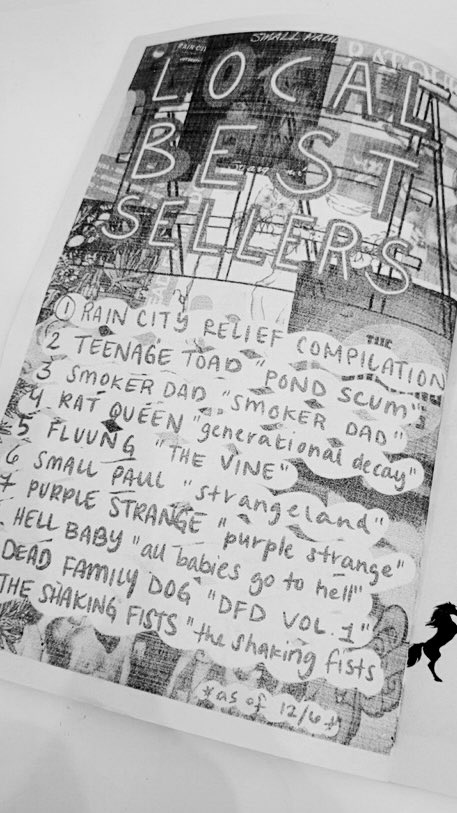 SMALL PAUL
RAIN CITY
LOCAL
BEST
SELLERS
THE
1 RAIN CITY RELIEF COMPILATION
2 TEENAGE TOAD "POND SCUM"
3 SMOKER DAD "SMOKER DAD"
4 RAT QUEEN "generational decay"
5 FLUUNG "THE VINE"
6 SMALL PAUL "strangeland"
7 PURPLE STRANGE "purple strange"
HELL BABY "all babies go to hell"
DEAD FAMILY DOG "DFD VOL. 1"
THE SHAKING FISTS "the shaking fists
*as of 12/6*